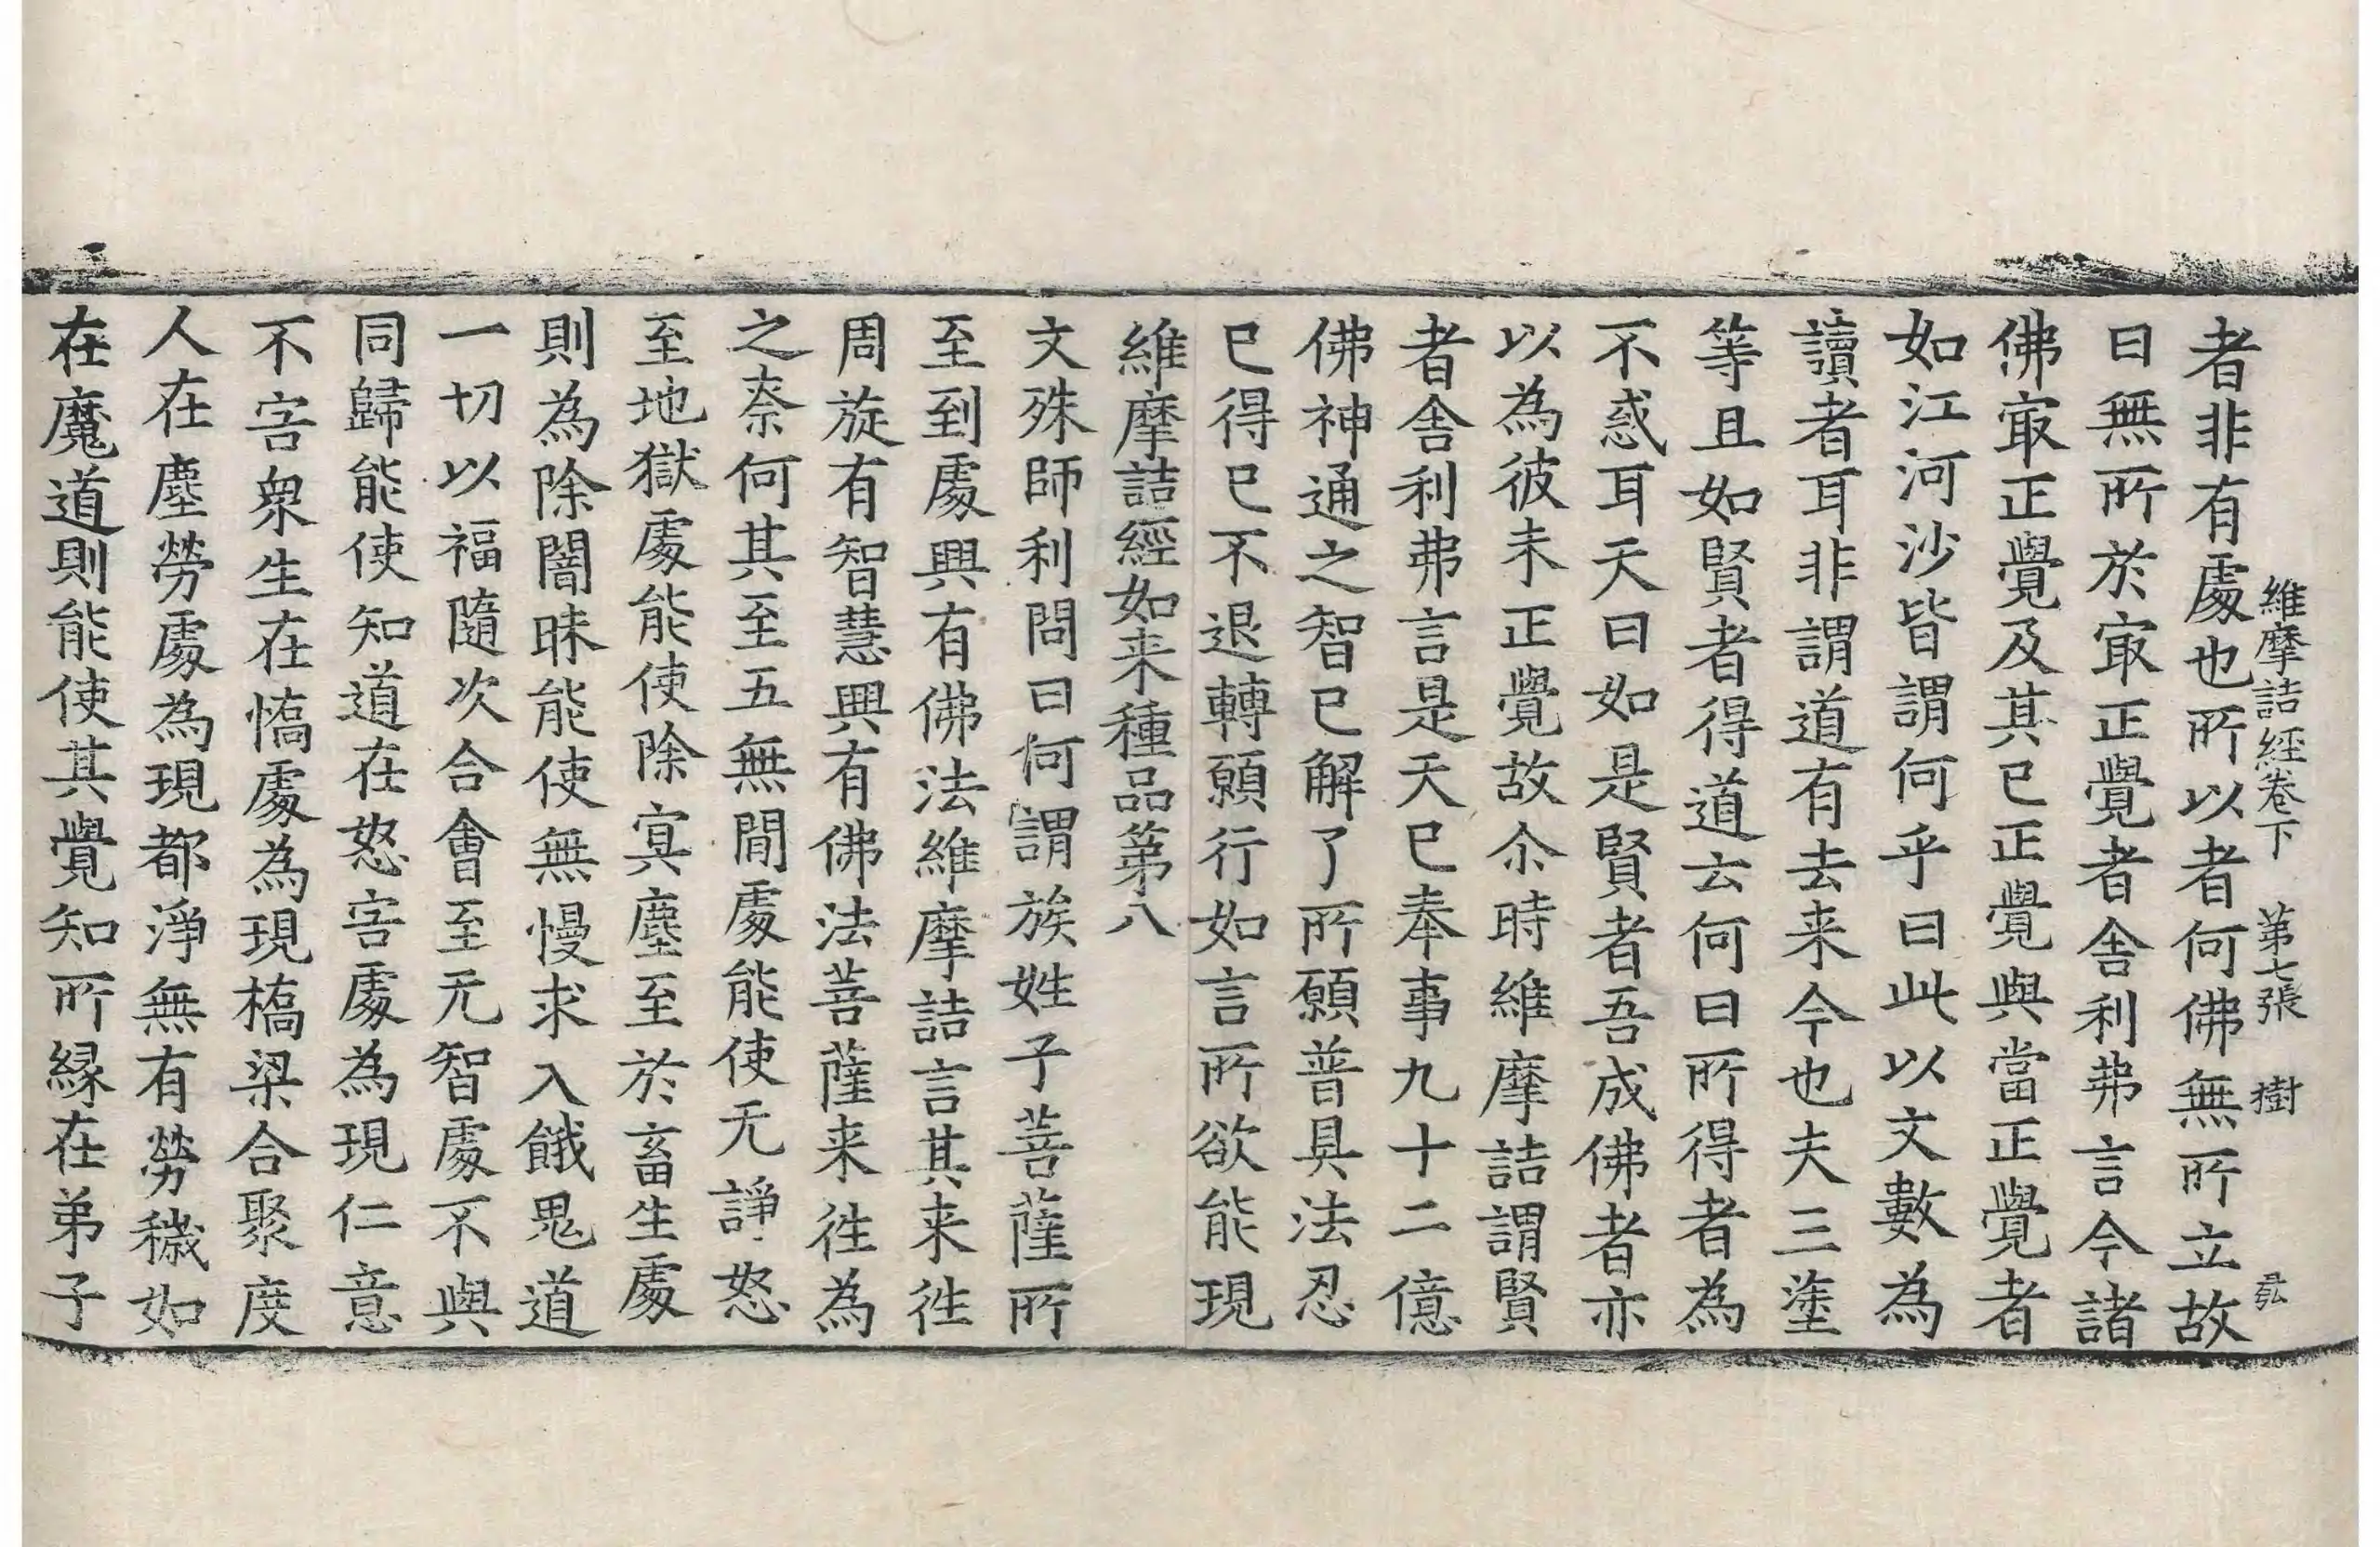 維摩詰經卷下 第七張 樹
者非有處也所以者何佛無所立故
曰無所於㝡正覺者舍利弗言今諸
佛㝡正覺及其已正覺與當正覺者
如江河沙皆謂何乎曰此以文數為
讀者耳非謂道有去来今也夫三塗
等且如賢者得道云何曰所得者為
不惑耳天曰如是賢者吾成佛者亦
以為彼未正覺故尒時維摩詰謂賢
者舍利弗言是天已奉事九十二億
佛神通之智已解了所願普具法忍
已得已不退轉願行如言所欲能現
維摩詰經如来種品第八
文殊師利問曰何謂族姓子菩薩所
至到處興有佛法維摩詰言其来徃
周旋有智慧興有佛法菩薩来徃為
之柰何其至五無間處能使无諍怒
至地獄處能使除㝠塵至於畜生處
則為除闇昧能使無慢求入餓鬼道
一切以福隨次合會至无智處不與
同歸能使知道在怒害處為現仁意
不害衆生在憍處為現橋梁合聚度
人在塵勞處為現都淨無有勞穢如
在魔道則能使其覺知所緣在弟子